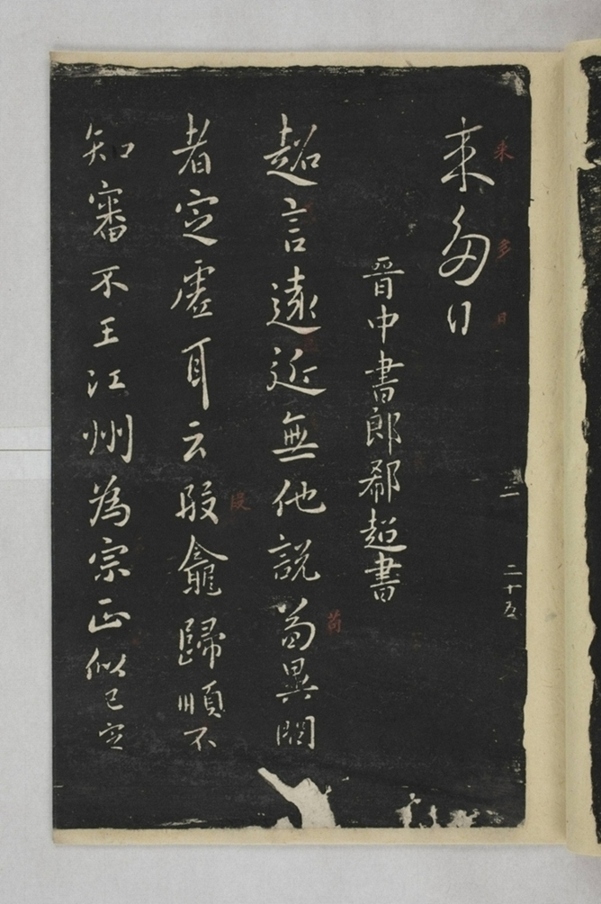 来多日
晉中書郎郗超書
超言遠近無他說苟異聞
者定虛耳云段龕歸順不
知審不王江州為宗正似已定
二 二十五
来 多 日
段
苟